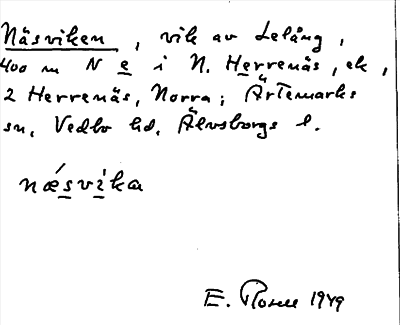 Näsviken, vik av Lelång,
400 m N e i N. Herrenäs, ek,
2 Herrenäs, Norra; Ärtemarks
sn, Vedbo hd, Älvsborgs l.
næ´svika
E. Rosell 1949